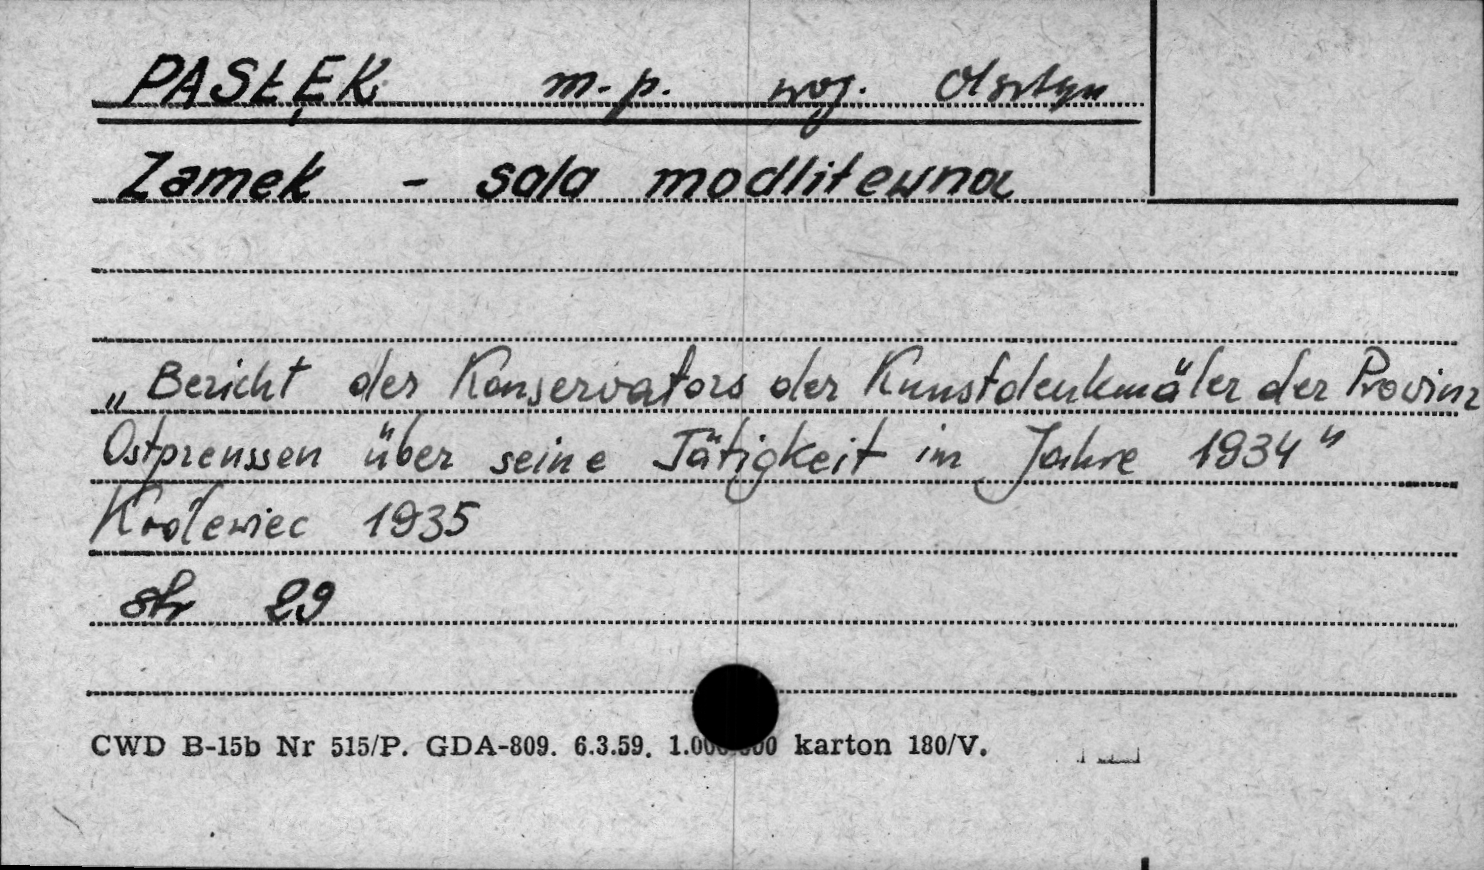 PASŁĘK m.p. woj. Olsztyn
Zamek - sala modlitewna
„Bericht des Konservators der Kunstdenkmäler der Provinz
Ostpreussen über seine Tätigkeit im Jahre 1934"
Królewiec 1935
str 29
CWD B-15b Nr 515/P. GDA-809. 6.3.59. 1.000.000 karton 180/V.